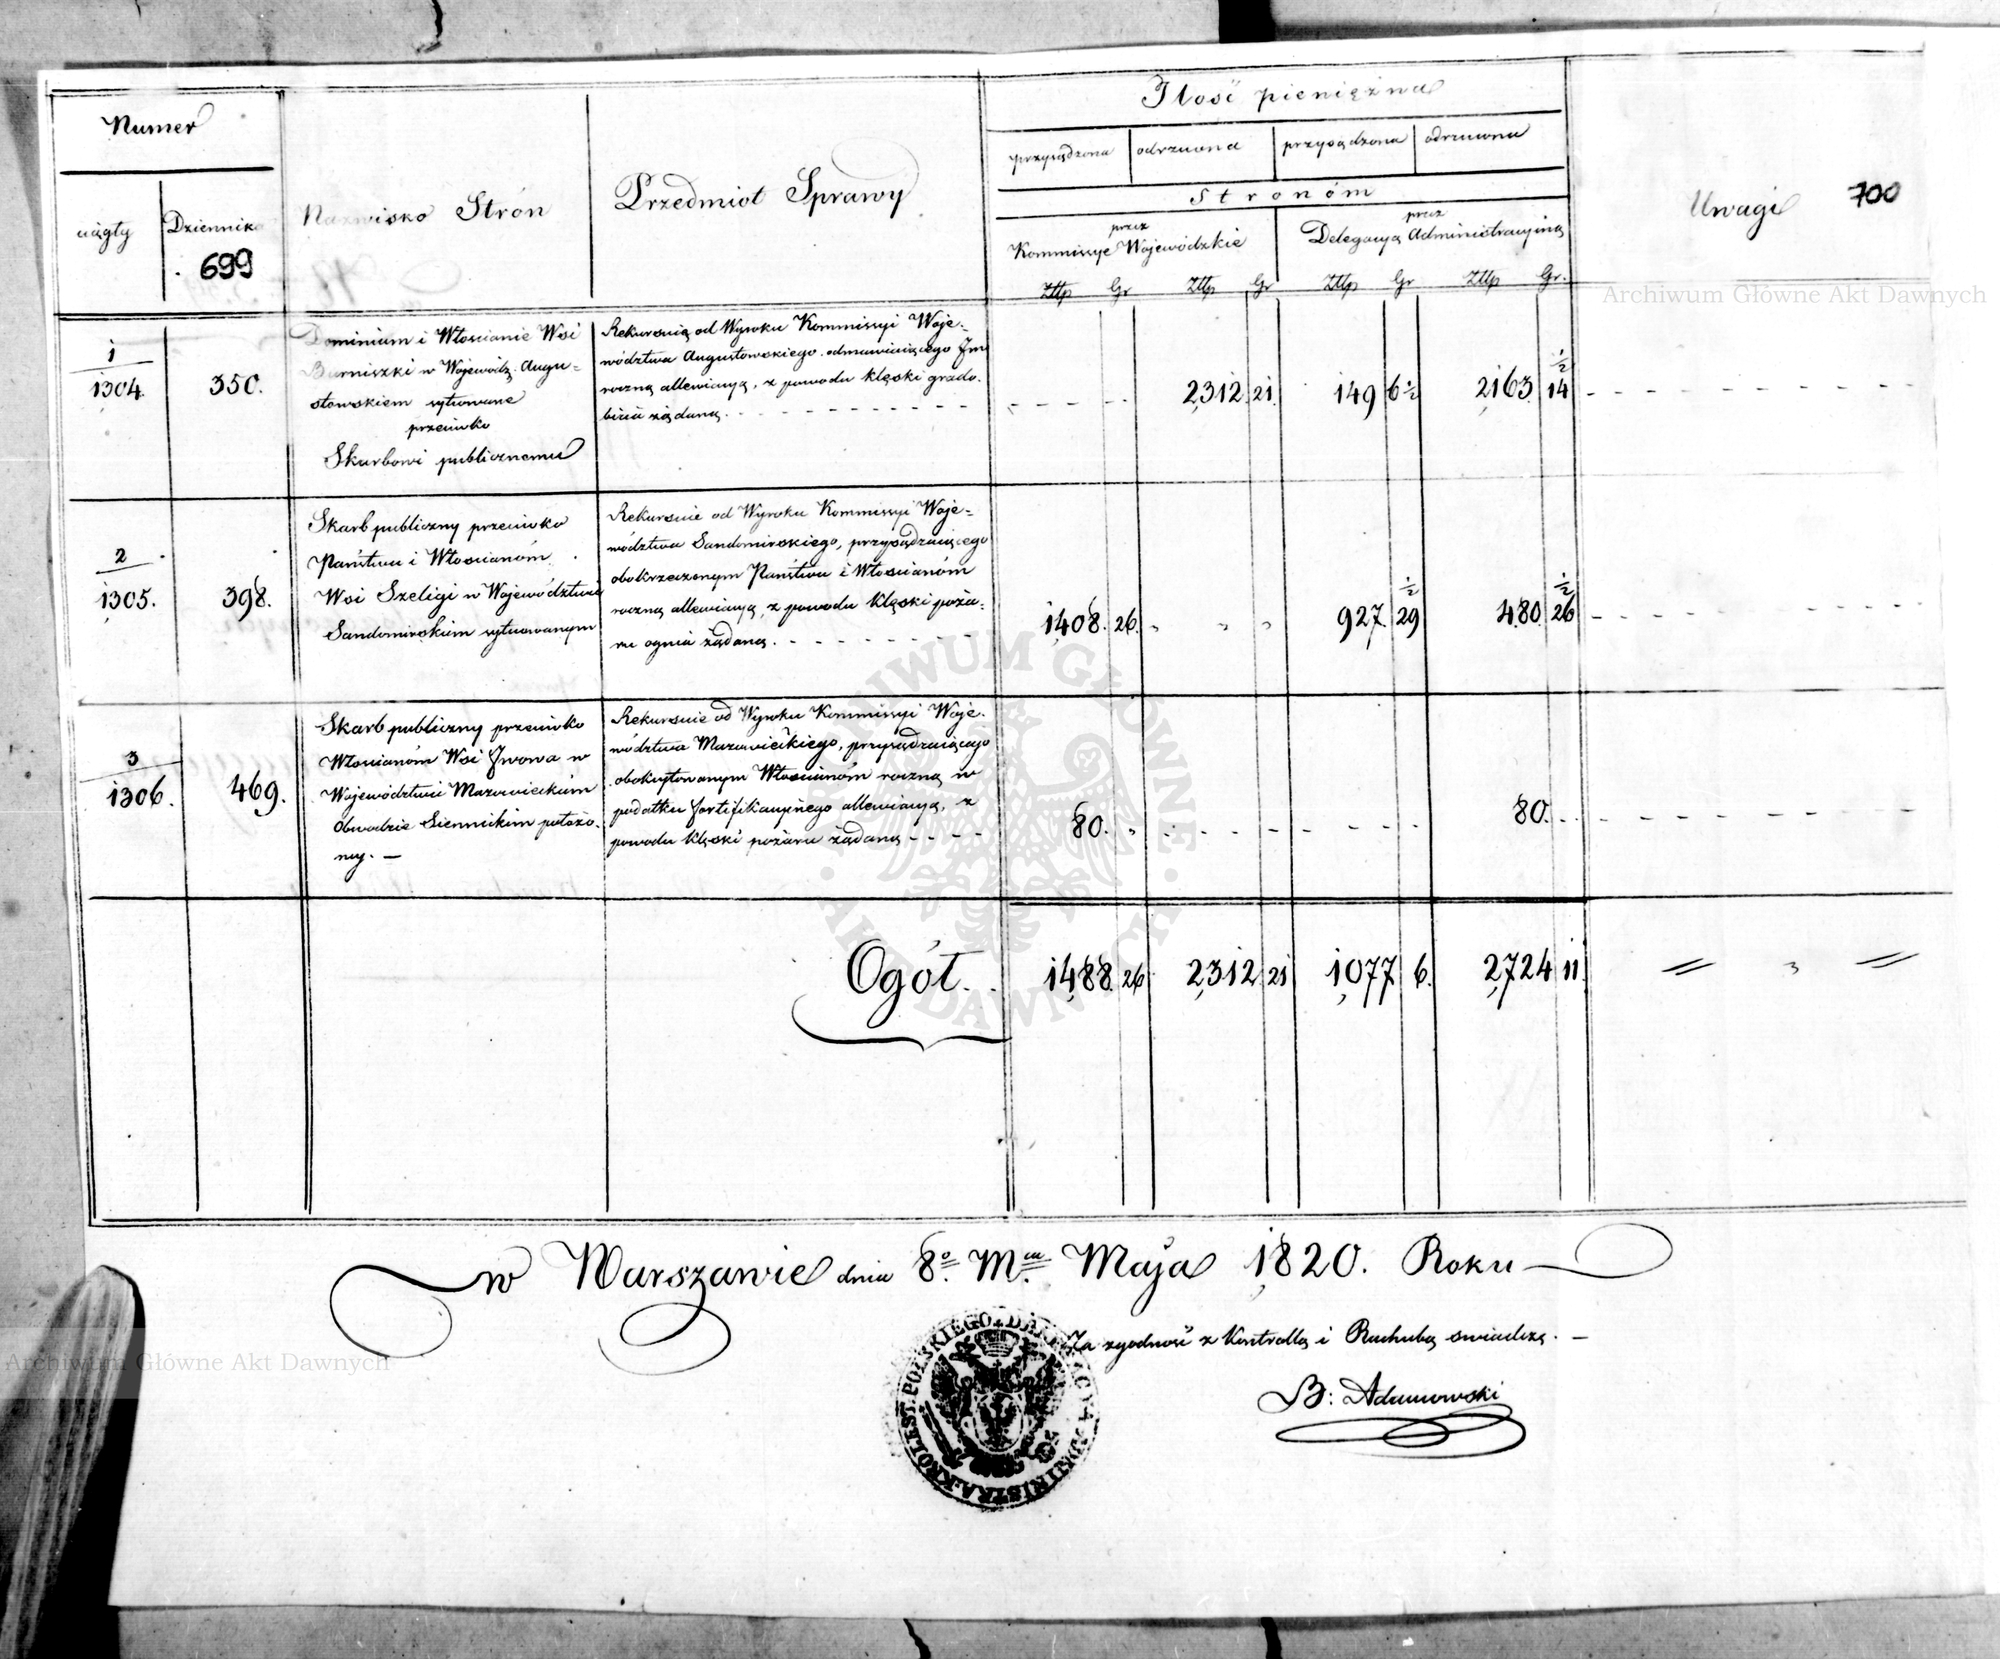 Numer
ciągły
Dziennika
699
Nazwisko Strón
Przedmiot Sprawy
Ilość pieniężna
przysądzona odrzucona przysądzona odrzucona
Stronóm
przez
Kommissye Wojewódzkie
przez
Delegacyą Administracyiną
Złłp Gr Złłp Gr Złłp Gr Złłp Gr.
Uwagi
700
Archiwum Główne Akt Dawnych
1
1304.
350.
Dominium i Włoscianie Wsi
Burniszki w Wojewódz. Augu=
stowskiem sytuowane
przeciwko
Skarbowi publicznemu
Rekursuią od Wyroku Kommissyi Woje=
wództwa Augustowskiego. odmawiaiącego Im
roczną allewiacyą, z powodu klęski grado.
bicia żądaną. - - - - - - - - - - -
- - - - 2,312. 21. 149 6½ 2,163. 14½ - - - - - - - - - -
2
1305.
398.
Skarb publiczny przeciwko
Państwu i Włoscianóm
Wsi Szeligi w Województwie
Sandomirskim sytuowanym
Rekursuie od Wyroku Kommissyi Woje=
wództwa Sandomirskiego, przysądzaiącego
obokrzeczonym Państwu i Włoscianóm
roczną allewiacyą, z powodu klęski poża=
ru ognia żądaną. - - - - - - - -
1,408. 26. „ „ „ 927. 29½ 480. 26½ - - - - - - - - -
3
1306.
469.
Skarb publiczny przeciwko
Włoscianóm Wsi Iwowa w
Województwie Mazowieckim
Obwodzie Siennickim położo.
ney. —
Rekursuie od Wyroku Kommissyi Woje.
wództwa Mazowieckiego, przysądzaiącego
obokcytowanym Włoscianóm roczną w
podatku fortifikacyinego allewiacyą, z
powodu klęski pożaru żądaną - - - -
80. „ - - - - - - - 80. - - - - - - - - - -
Ogół. 1,488. 26. 2,312. 21 1,077 6. 2,724 11. = „ =
w Warszawie dnia 8º. Mca. Maja 1,820. Roku
Za zgodność z Kontrollą i Rachubą swiadczę. —
B: Adamowski
KROLEST. POLSKIEGO
ARCHIWUM GŁÓWNE
AKT DAWNYCH
Archiwum Główne Akt Dawnych